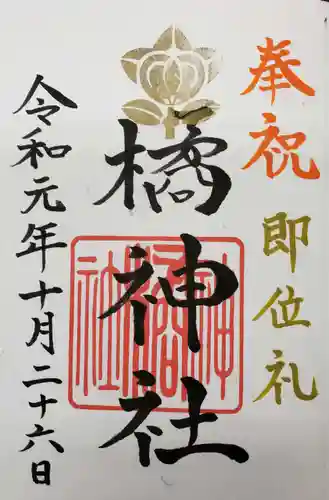 奉祝
即位礼
橘神社
令和元年十月二十六日